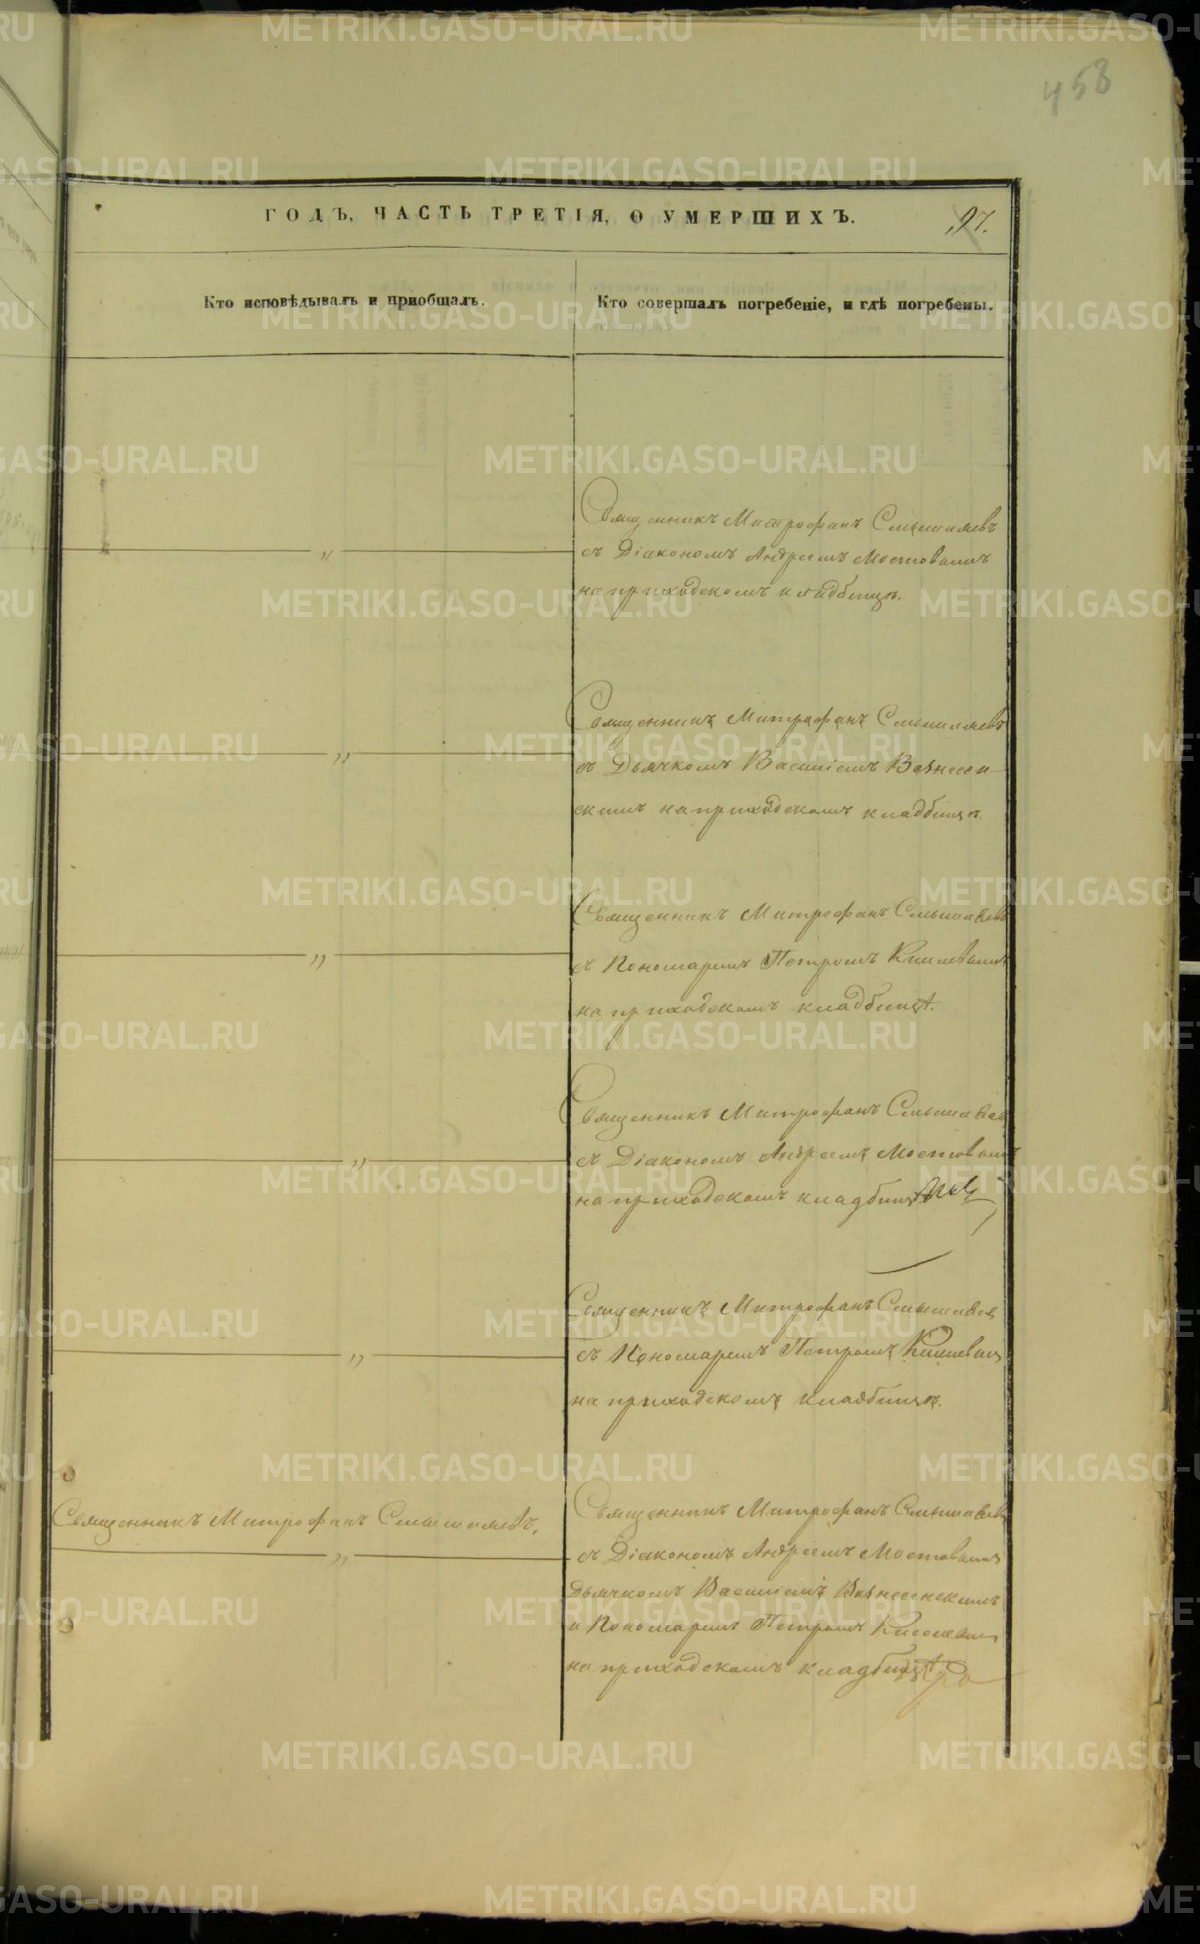 458
ГОДЪ, ЧАСТЬ ТРЕТІЯ, О УМЕРШИХЪ.
97.
Кто исповѣдывалъ и пріобщалъ.
Кто совершалъ погребеніе, и гдѣ погребены.
Священникъ Митрофанъ Смышляевъ
съ Діакономъ Андреемъ Мостовымъ
на приходскомъ кладбищѣ.
Священникъ Митрофанъ Смышляевъ
съ Дьячкомъ Василіемъ Вознесен
скимъ на приходскомъ кладбищѣ
Священникъ Митрофанъ Смышляевъ
съ Пономаремъ Петромъ
на приходскомъ кладбищѣ.
Священникъ Митрофанъ Смышляевъ
съ Діакономъ Андреемъ Мостовымъ
на приходскомъ кладбищѣ
Священникъ Митрофанъ Смышляевъ
съ Пономаремъ Петромъ
на приходскомъ кладбищѣ.
Священникъ Митрофанъ Смышляевъ.
Священникъ Митрофанъ Смышляевъ
съ Діакономъ Андреемъ Мостовымъ
Дьячкомъ Василіемъ Вознесенскимъ
и Пономаремъ Петромъ
на приходскомъ кладбищѣ
METRIKI.GASO-URAL.RU